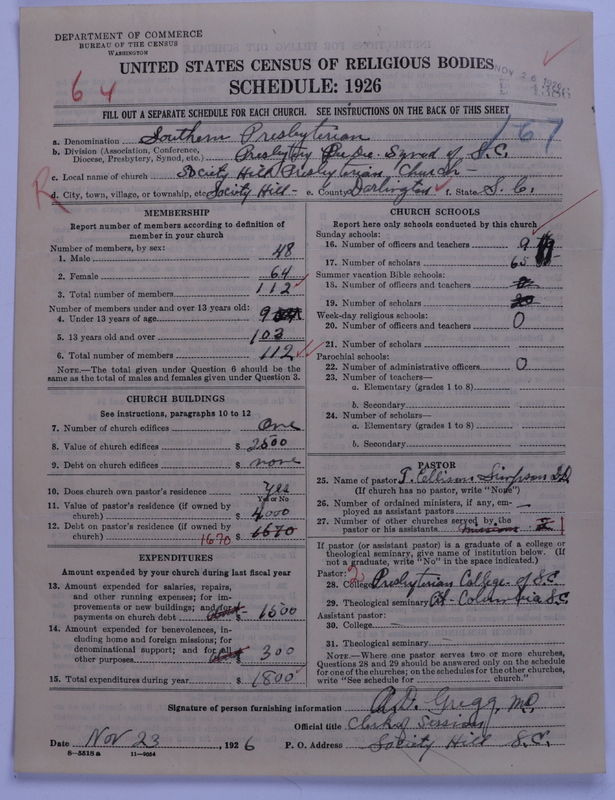 DEPARTMENT OF COMMERCE
BUREAU OF THE CENSUS
WASHINGTON
NOV 26 1926
64
UNITED STATES CENSUS OF RELIGIOUS BODIES
SCHEDULE: 1926
FILL OUT A SEPARATE SCHEDULE FOR EACH CHURCH. SEE INSTRUCTIONS ON THE BACK OF THIS SHEET
167
a. Denomination Southern Presbyterian
b. Division (Association, Conference, Diocese, Presbytery, Synod, etc.) Presbytery Pee Dee. Synod of S.C.
c. Local name of church Society Hill Presbyterian Church
R
d. City, town, village, or township, etc. Society Hill e. County Darlington f. State S. C.
MEMBERSHIP
Report number of members according to definition of
member in your church
Number of members, by sex:
1. Male 48
2. Female 64
3. Total number of members 112
Number of members under and over 13 years old:
4. Under 13 years of age 9
5. 13 years old and over 103
6. Total number of members 112
NOTE.—The total given under Question 6 should be the
same as the total of males and females given under Question 3.
CHURCH BUILDINGS
See instructions, paragraphs 10 to 12
7. Number of church edifices One
8. Value of church edifices $ 2500
9. Debt on church edifices $ none
10. Does church own pastor's residence Yes
Yes or No
11. Value of pastor's residence (if owned by
church) $ 4000
12. Debt on pastor's residence (if owned by
church) 1670 $ 1670
EXPENDITURES
Amount expended by your church during last fiscal year
13. Amount expended for salaries, repairs,
and other running expenses; for im-
provements or new buildings; and for
payments on church debt $ 1500
14. Amount expended for benevolences, in-
cluding home and foreign missions; for
denominational support; and for all
other purposes $ 300
15. Total expenditures during year $ 1800
CHURCH SCHOOLS
Report here only schools conducted by this church
Sunday schools:
16. Number of officers and teachers 9
17. Number of scholars 65
Summer vacation Bible schools:
18. Number of officers and teachers
19. Number of scholars
Week-day religious schools:
20. Number of officers and teachers 0
21. Number of scholars
Parochial schools:
22. Number of administrative officers 0
23. Number of teachers—
a. Elementary (grades 1 to 8)
b. Secondary
24. Number of scholars—
a. Elementary (grades 1 to 8)
b. Secondary
PASTOR
25. Name of pastor T. Ellison Simpson D.D.
(If church has no pastor, write "None")
26. Number of ordained ministers, if any, em-
ployed as assistant pastors —
27. Number of other churches served by the
pastor or his assistants 1
If pastor (or assistant pastor) is a graduate of a college or
theological seminary, give name of institution below. (If
not a graduate, write "No" in the space indicated.)
Pastor: 2
28. College Presbyterian College of S.C.
29. Theological seminary Columbia S.C.
Assistant pastor:
30. College
31. Theological seminary
NOTE.—Where one pastor serves two or more churches,
Questions 28 and 29 should be answered only on the schedule
for one of the churches; on the schedules for the other churches,
write "See schedule for church."
Signature of person furnishing information D. Gregg M.D.
Official title Clerk of Session
Date Nov 23, 1926 P. O. Address Society Hill S.C.
8—5518a 11—9054